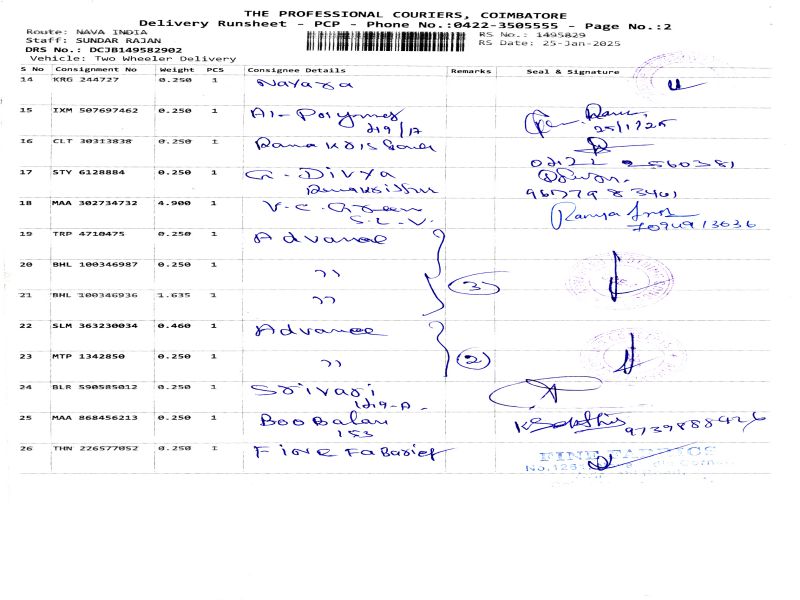 THE PROFESSIONAL COURIERS, COIMBATORE
Delivery Runsheet - PCP - Phone No.:0422-3505555 - Page No.:2
Route: NAVA INDIA
Staff: SUNDAR RAJAN
DRS No.: DCJB149582902
Vehicle: Two Wheeler Delivery
RS No.: 1495829
RS Date: 25-Jan-2025
S No Consignment No Weight PCS Consignee Details Remarks Seal & Signature
14 KRG 244727 0.250 1 Nayara
15 IXM 507697462 0.250 1 A1-Polymer
219/17 25/1/25
16 CLT 30313838 0.250 1
0422 2560381
17 STY 6128884 0.250 1 G. Divya
9677983461
18 MAA 302734732 4.900 1 V.C. Green
S.L.V. Ramya
19 TRP 4710475 0.250 1 Advance
20 BHL 100346987 0.250 1 ,,
21 BHL 100346936 1.635 1 ,, 3
22 SLM 363230034 0.460 1 Advance
23 MTP 1342850 0.250 1 ,, 2
24 BLR 590585012 0.250 1 Srivari
1219-A.
25 MAA 868456213 0.250 1 Boobalan
153 9739888426
26 THN 226577052 0.250 1 Fine Fabrief
FINE FABRICS